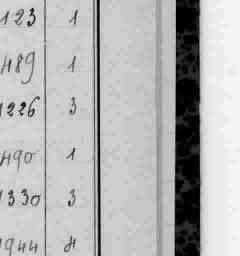 123 1
489 1
1226 3
490 1
1330 3
1944 4